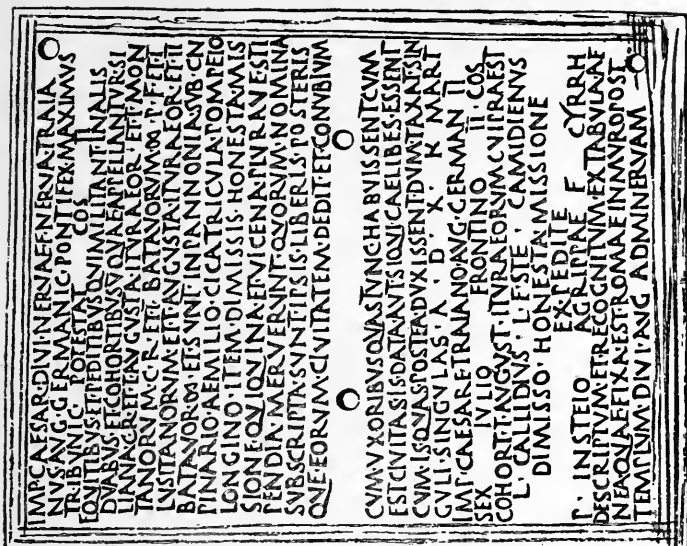 IMP·CAESAR·DIVI·NERVAE·F·NERVA·TRAIA
NVS·AVG·GERMANIC·PONTIFEX·MAXIMVS
TRIBVNIC POTESTAT COS II
EQVITIBVS·ET·PEDITIBVS·QVI·MILITANT·IN·ALIS
DVABVS·ET·COHORTIBVS·QVAE·APPELLANTVR·SI
LIANA·C·R·ET·I·AVGVSTA·ITVRAEOR·ET·I·MON
TANORVM·C·R·ET·I·BATAVORVM·∞·P·F·ET·I
LVSITANORVM·ET·I·AVGVSTA·ITVRAEOR·ET·II
BATAVOR·∞·ET·SVNT·IN·PANNONIA·SVB·CN
PINARIO·AEMILIO·CICATRICVLA·POMPEIO
LONGINO·ITEM·DIMISSIS·HONESTA·MIS
SIONE·QVI·QVINA·ET·VICENA·PLVRAVE·STI
PENDIA·MERVERVNT·QVORVM·NOMINA
SVBSCRIPTA·SVNT·IPSIS·LIBERIS·POSTERIS
QVE·EORVM·CIVITATEM·DEDIT·ET·CONVBIVM
CVM·VXORIBVS·QVAS·TVNC·HABVISSENT·CVM
EST·CIVITAS·IS·DATA·AVT·SIQVI·CAELIBES·ESSENT
CVM·IS·QVAS·POSTEA·DVXISSENT·DVM·TAXAT·SIN
GVLI·SINGVLAS·A · D · X · K MART
IMP·CAESARE·TRAIANO·AVG·GERMAN II
SEX IVLIO FRONTINO II COS
COHORT·I·AVGVST·ITVRAEORVM·CVI·PRAEST
L · CALLIDIVS · L·F·STE · CAMIDIENVS
DIMISSO·HONESTA·MISSIONE
EX·PEDITE
P · INSTEIO AGRIPPAE F CYRRH
DESCRIPTVM·ET·RECOGNITVM·EX·TABVLA·AE
NEA·QVAE·FIXA·EST·ROMAE·IN·MVRO·POST
TEMPLVM·DIVI·AVG AD·MINERVAM